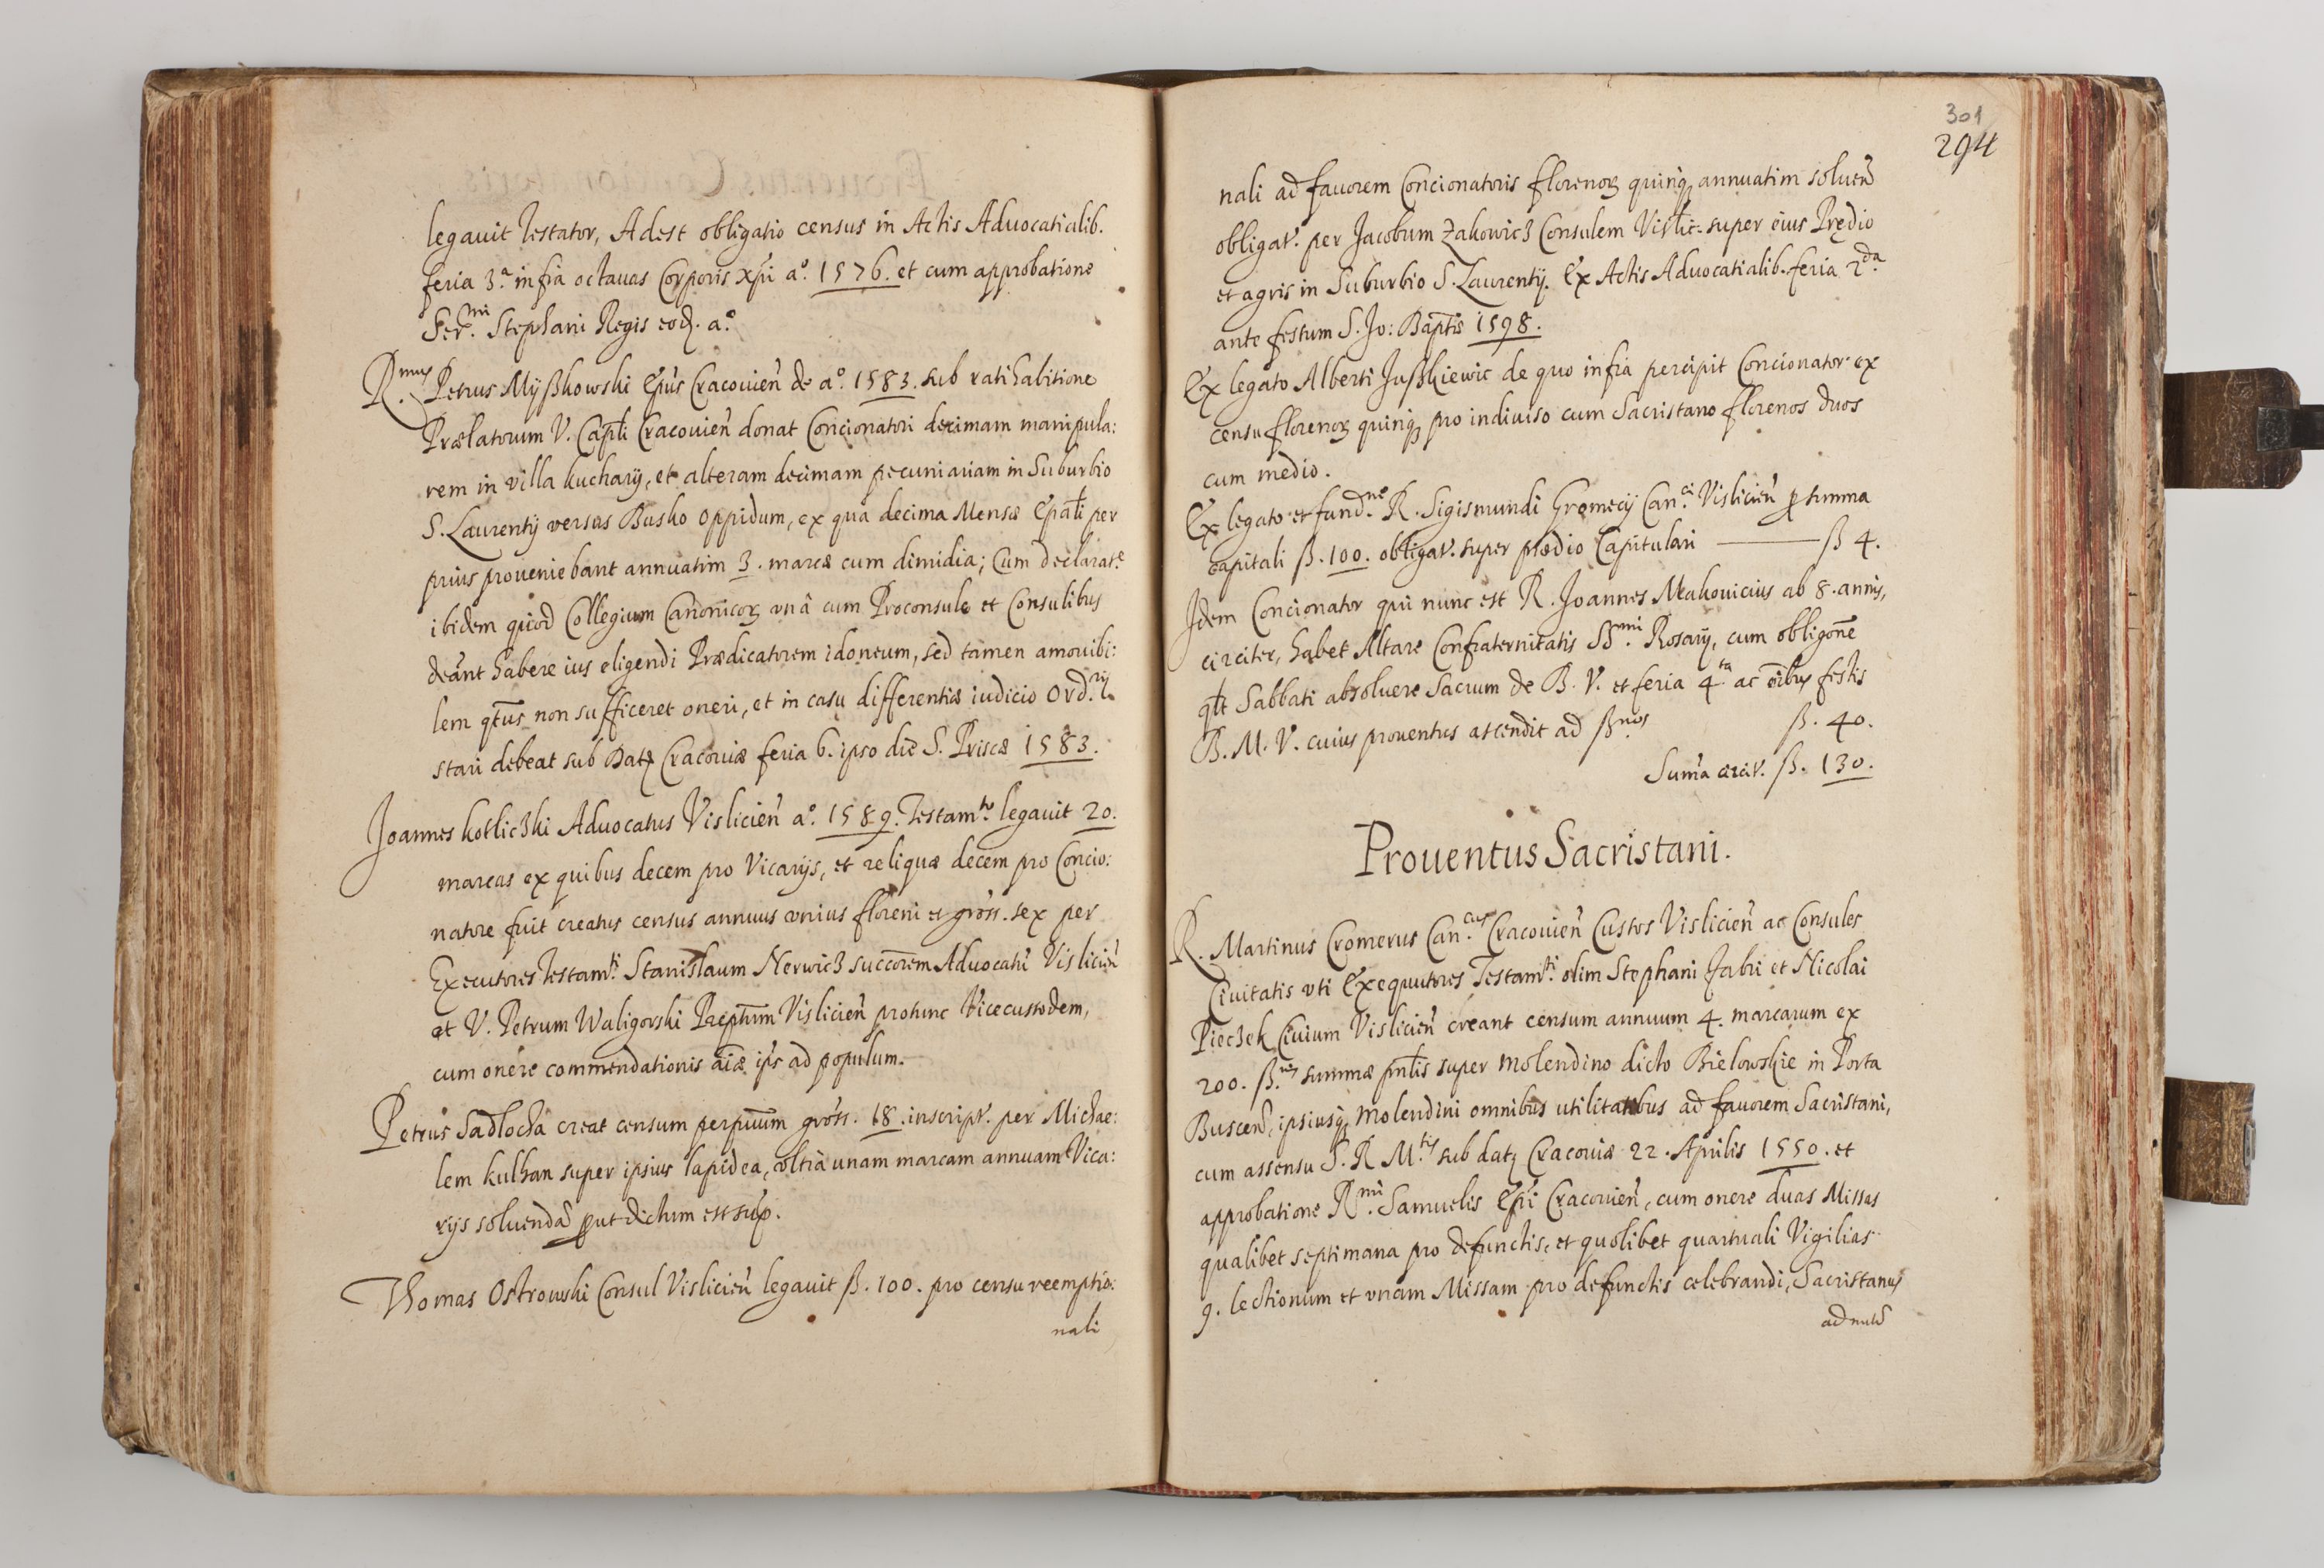 legauit Testator, Adest obligatio census in Actis Aduocatialib.
feria 3.a infra octauas Corporis Xpi a.o 1576. et cum approbatione
Ser.mi Stephani Regis eod. a.o
R.mus Petrus Myßkowski Epus Cracouien de a.o 1583. sub ratihabitione
Prælatorum V. Capli Cracouien donat Concionatori decimam manipula:
rem in villa kuchary, et alteram decimam pecuniariam in Suburbio
S. Laurentij versus Busko oppidum, ex qua decima Mensæ Epali per
prius proueniebant annuatim 3. marcæ cum dimidia; Cum declarat.e
ibidem quod Collegium Canonicor vnâ cum Proconsule et Consulibus
deant habere ius eligendi Prædicatorem idoneum, sed tamen amouibi:
lem qtus non sufficeret oneri, et in casu differentiæ iudicio Ord.rij
stari debeat sub Dat Cracouiæ feria 6. ipso die S. Priscæ 1583.
Joannes kotliczki Aduocatus Vislicien a.o 1589. Testam.to legauit 20.
marcas ex quibus decem pro Vicarijs, et reliquæ decem pro Concio:
natore fuit creatus census annuus vnius floreni et gross. sex per
Executores Testam.ti Stanislaum Nerwicz succorem Aduocati Vislicien
et V. Petrum Waligorski Præptum Vislicien protunc Vicecustodem,
cum onere commendationis aiæ ips ad populum.
Petrus Sadlocha creat censum perpuum gross. 18. inscript. per Michae:
lem kulhan super ipsius lapidea, vltra unam marcam annuam Vica:
rijs soluenda put dictum est sup.
Thomas Ostrowski Consul Vislicien legauit ß. 100. pro censu reemptio:
nali
301
294
nali ad fauorem Concionatoris florenor quinq annuatim soluen
obligat. per Jacobum Zakowicz Consulem Vislic. super eius Prędio
et agris in Suburbio S. Laurentij. Ex Actis Aduocatialib. feria 2da
ante festum S. Jo: Baptis 1598.
Ex legato Alberti Jußkiewic de quo infra percipit Concionator ex
censu florenor quinq pro indiuiso cum Sacristano florenos duos
cum medio.
Ex legato et fund.ne R. Sigismundi Gromecij Can.ci Vislicien p summa
capitali ß. 100. obligat. super prædio Capitulari — ß 4.
Idem Concionator qui nunc est R. Joannes Makouicius ab 8. annis,
circiter, habet Altare Confraternitatis SS.mi Rosarij, cum obligone
qlt Sabbati absoluere Sacrum de B. V. et feria 4.ta ac oibus festis
B. M. V. cuius prouentus ascendit ad ß.nos ß. 40.
Suma circit. ß. 130.
Prouentus Sacristani.
R. Martinus Cromerus Can.cus Cracouien Custos Vislicien ac Consules
Ciuitatis vti Exequutores Testam.ti olim Stephani Fabri et Nicolai
Pieczek Ciuium Vislicien creant censum annuum 4. marcarum ex
200. ß.nis summæ pntis super Molendino dicto Bielowskie in Porta
Buscen, ipsiusq Molendini omnibus utilitatibus ad fauorem Sacristani,
cum assensu S. R. M.tis sub dat Cracouiæ 22. Aprilis 1550. et
approbatione R.mi Samuelis Epi Cracouien, cum onere duas Missas
qualibet septimana pro defunctis, et quolibet quartuali Vigilias
9. lectionum et vnam Missam pro defunctis celebrandi, Sacristanus
ad nut